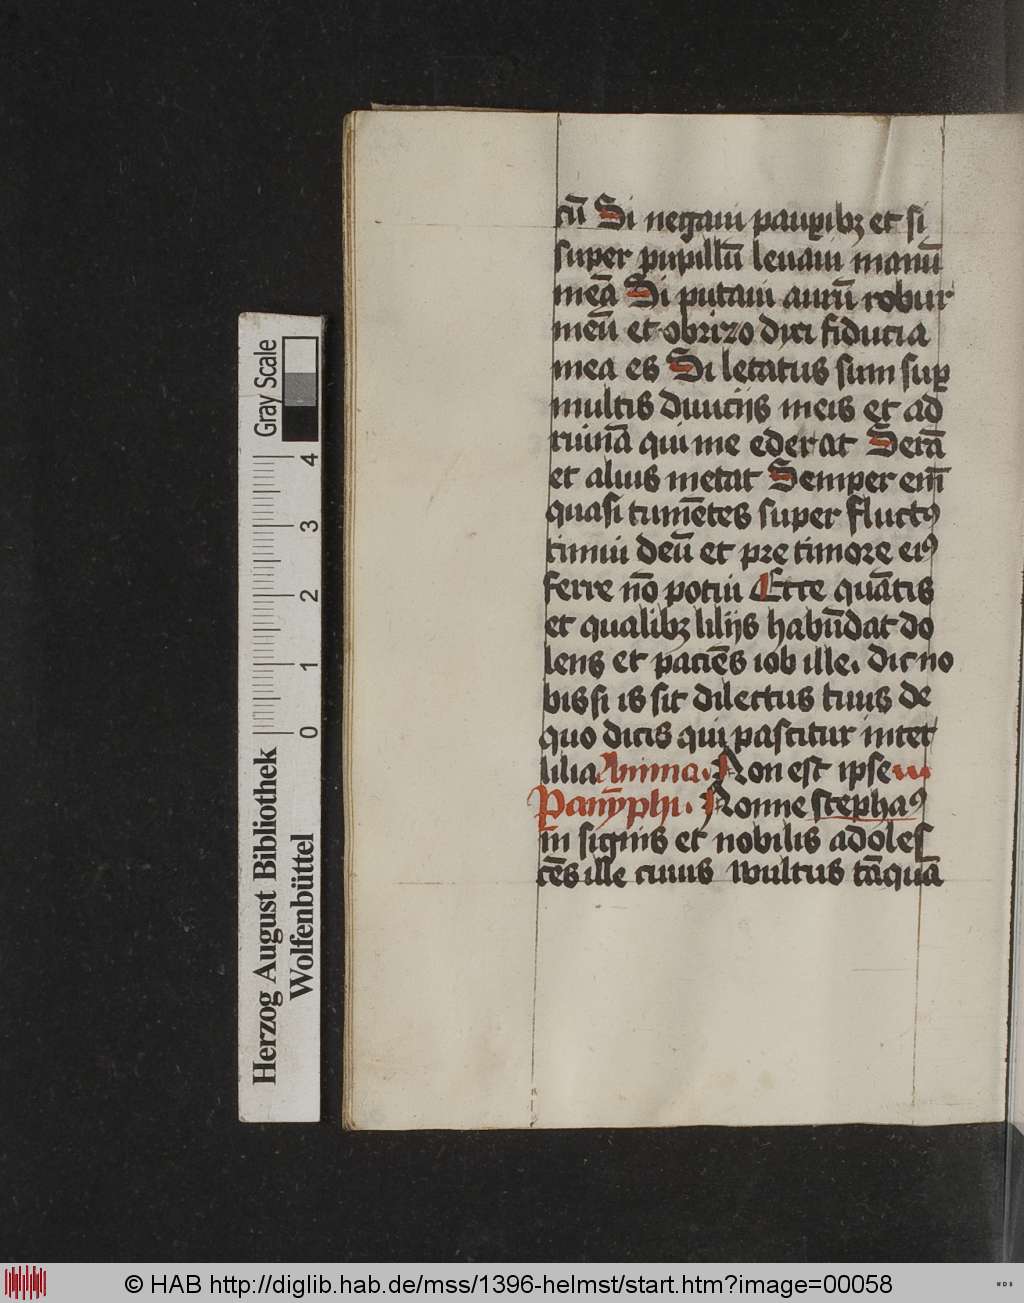 cū Si negaui paupibꝫ et si
super pupillū leuaui manū
meā Si putaui aurū robur
meū et obrizo dixi fiducia
mea es Si letatus sum sup
multis diuicijs meis et ad
ruinā qui me oderat Serā
et alius metat Semper em̄
quasi tumētes super fluctꝰ
timui deū et pre timore eiꝰ
ferre nō potui Ecce quātis
et qualibꝫ lilijs habūdat do
lens et paciēs iob ille. dic no
bis si is sit dilectus tuus de
quo dicis qui pascitur inter
lilia Anima. Non est ipse
Parāyphi. Nonne stephaꝰ
in signis et nobilis adoles
cēs ille cuius wultus tāquā
Gray Scale
4 3 2 1 0
Herzog August Bibliothek
Wolfenbüttel
© HAB http://diglib.hab.de/mss/1396-helmst/start.htm?image=00058